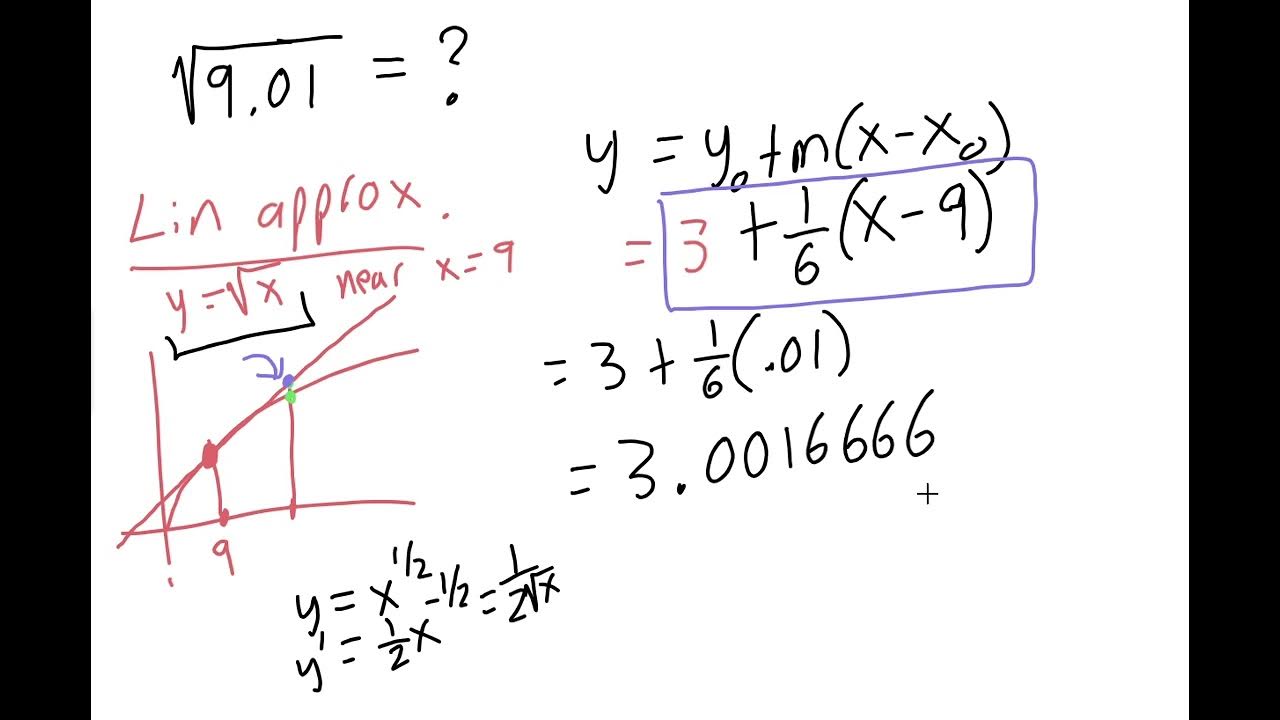 √9.01 = ?
Lin approx.
y = √x near x = 9
9
y = x^1/2
y' = 1/2 x^-1/2 = 1/2√x
y = y₀ + m(x - x₀)
= 3 + 1/6 (x - 9)
= 3 + 1/6 (.01)
= 3.0016666